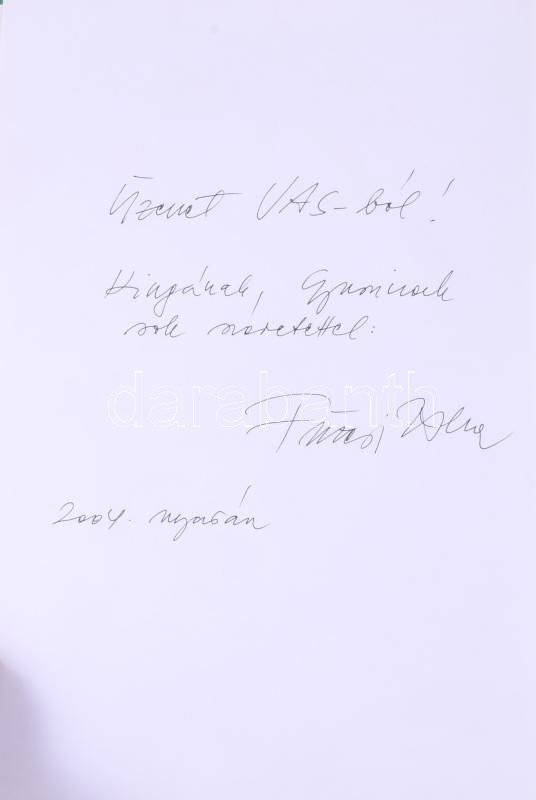 Üzenet VAS-ból!
Kingának, Gyuricnak
sok szeretettel:
darabanth
2004. nyarán